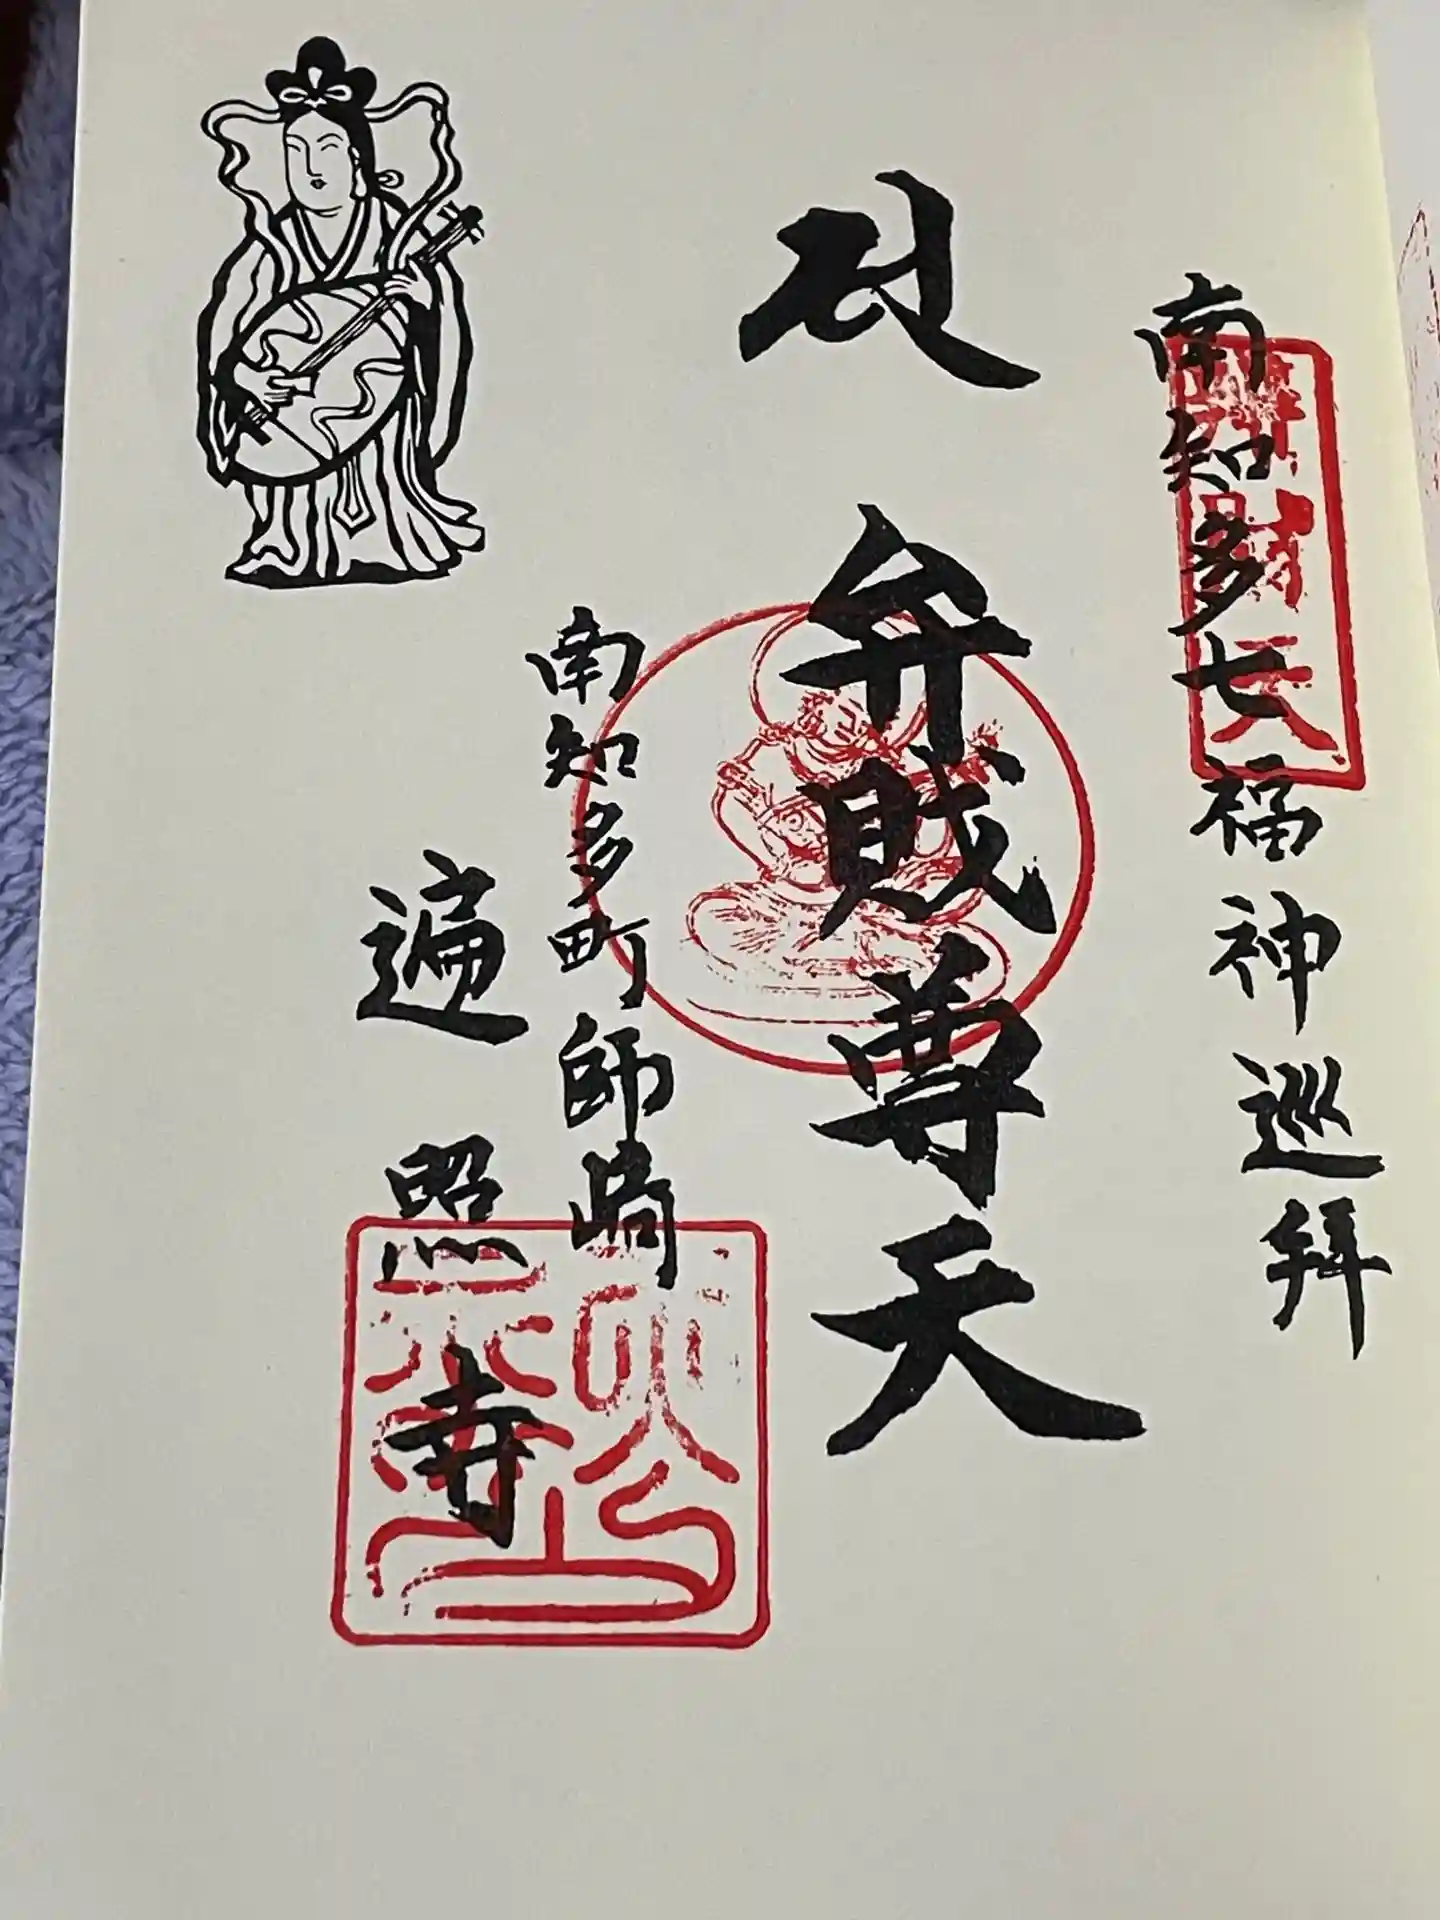 南知多七福神巡拜
弁財天
弁財尊天
南知多町師崎
遍照寺